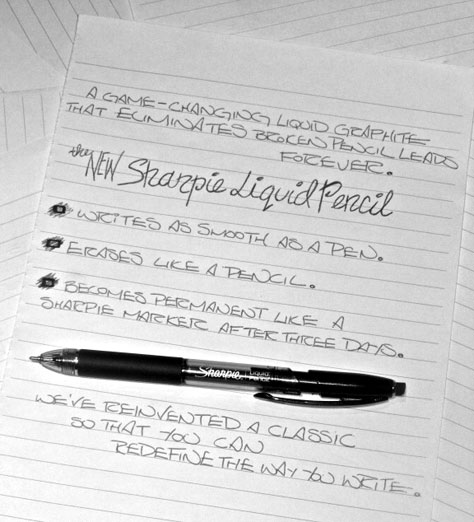 A GAME-CHANGING LIQUID GRAPHITE
THAT ELIMINATES BROKEN PENCIL LEADS
FOREVER.
the NEW Sharpie Liquid Pencil
WRITES AS SMOOTH AS A PEN.
ERASES LIKE A PENCIL.
BECOMES PERMANENT LIKE A
SHARPIE MARKER AFTER THREE DAYS.
Sharpie. Liquid
Pencil
WE'VE REINVENTED A CLASSIC
SO THAT YOU CAN
REDEFINE THE WAY YOU WRITE.